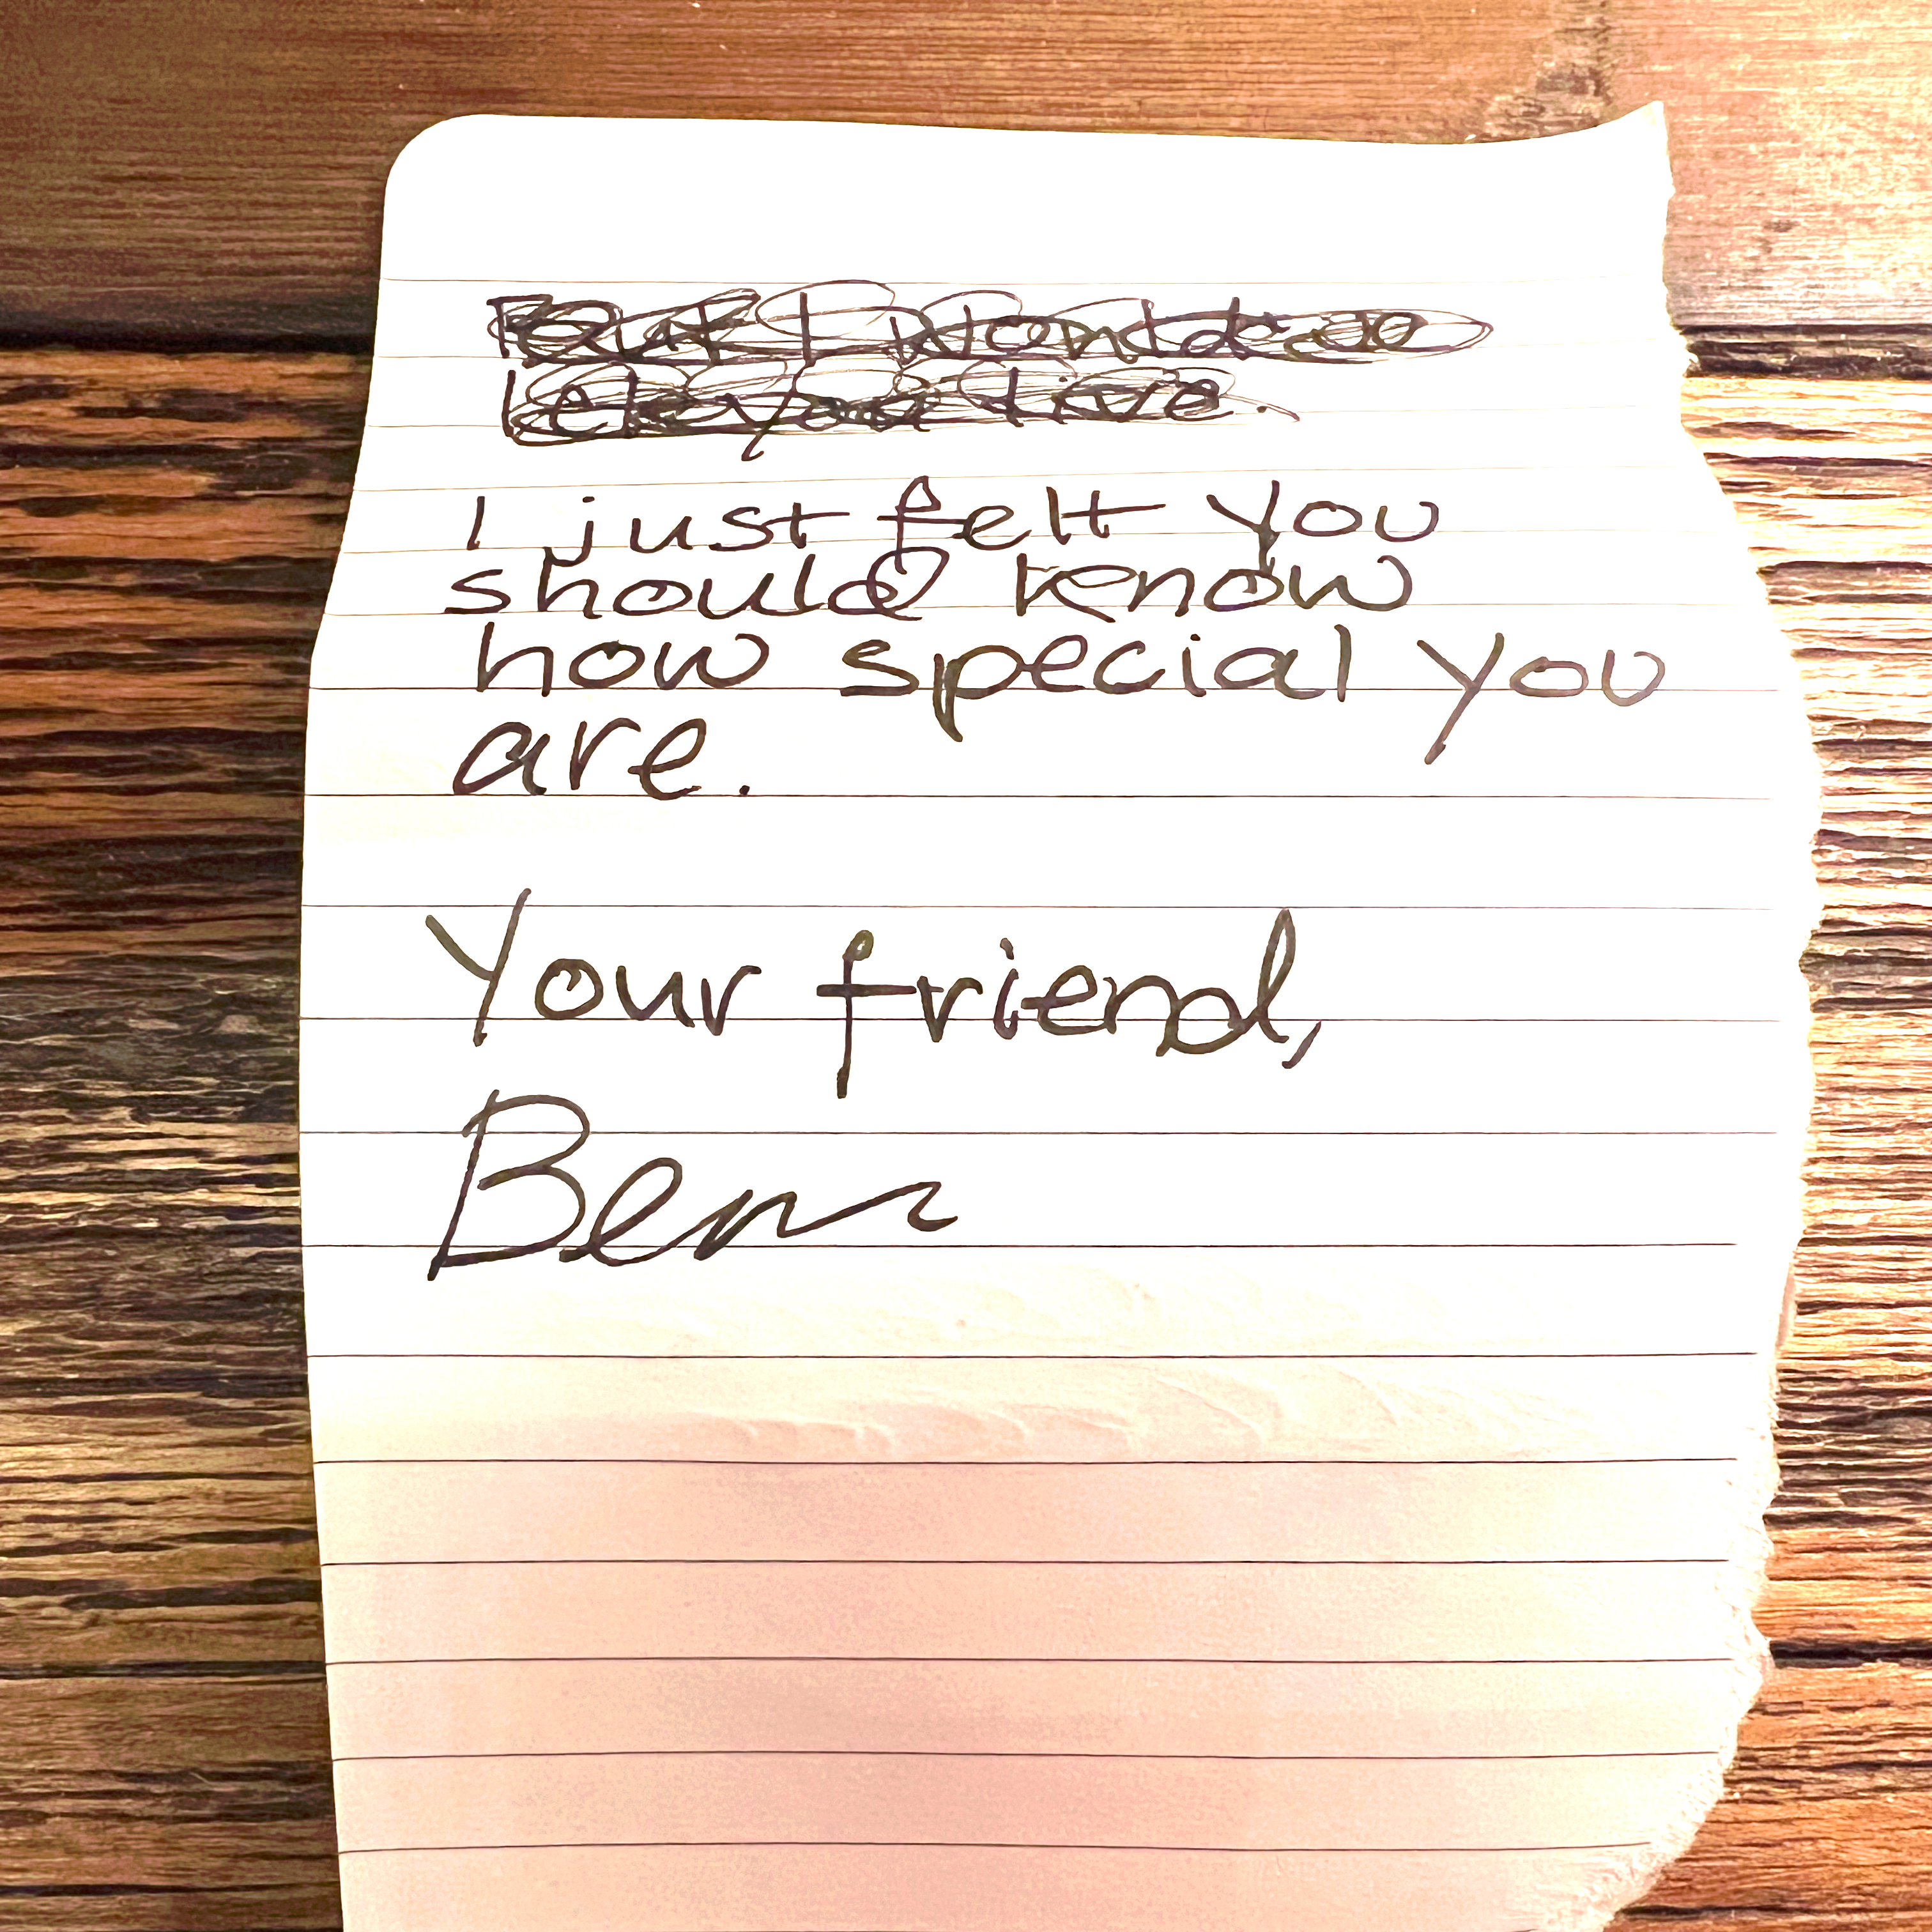 I just felt you
should know
how special you
are.
Your friend,
Ben